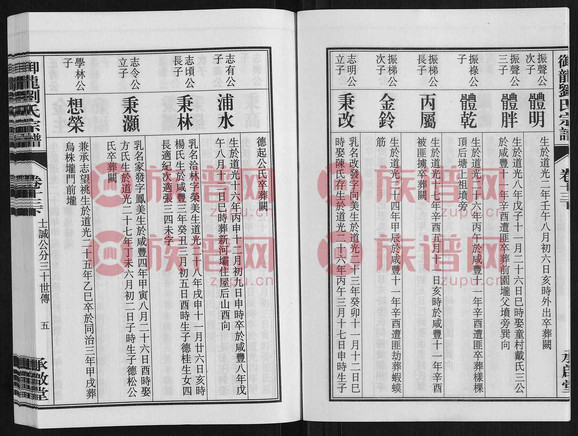 御龍劉氏宗譜
卷十三
承啟堂
振聲公次子
體明
生於道光二年壬午八月初六日亥時外出卒葬闕
振聲公三子
體胖
生於道光八年戊子十一月二十六日巳時娶童村戴氏三公
於咸豐十一年辛酉遭匪卒葬前園壠父墳旁巽向
振祿公次子
體乾
生於道光 於咸豐十一年辛酉遭匪卒葬樣樑
頂后塘 祖墳旁
振梯公長子
丙屬
生於道光十七年 酉五月十二日亥時於咸豐十一年辛酉
被匪擄卒葬闕
振梯公次子
金鈴
生於道光二十四年甲辰於咸豐十一年辛酉遭匪劫葬蝦蟆
筋
志明公立子
秉改
乳名改發字向美生於道光二十三年癸卯十一月十二日巳
時娶陳氏存生於道光二十六年丙午三月十七日申時生子
德起公氏卒葬闕
志有公子
浦水
生於道光十六年丙申十二月初九日申時卒於咸豐八年戊
午八月十日巳時葬新河壩住屋后山酉向
志頃公長子
秉林
乳名治林字榮美生道光二十八年戊申十一月廿六日亥時
楊氏生於咸豐三年癸丑三月初五日酉時生子德桂生女四
長適紀次適張三四未字
志令公立子
秉灝
乳名家發字鳳美生於咸豐四年甲寅八月二十六日酉時娶
方氏生於道光二十七年丁未六月初二日子時生子德松公
氏卒葬闕
學林公子
想榮
兼承志顯祧生於道光二十五年乙巳卒於同治三年甲戌葬
烏株壠門前壠
士誠公分三十世傳
五
御龍劉氏宗譜
卷十三下
承啟堂
族谱网
zupu.cn
族谱网
zupu.cn